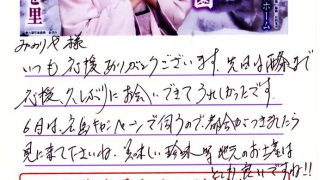 を里
ホーム
みのりや様
いつも応援ありがとうございます。先日は
応援、久しぶりにお会いできてうれしかったです。
6月は、広島キャンペーンで伺うので、都合がつきましたら
見に来て下さいね。美味しい珍味等地元のお土産は
とても良いですね!!